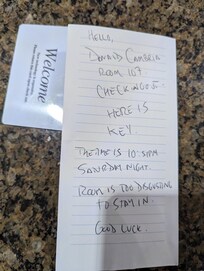 Welcome
HELLO,
DONALD CAMBRIA
ROOM 107
CHECKING OUT.
HERE IS
KEY
THE TIME IS 10:37PM
SATURDAY NIGHT.
ROOM IS TOO DISGUSTING
TO STAY IN.
GOOD LUCK.